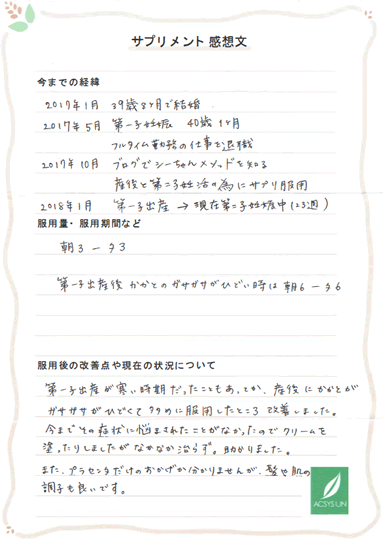 サプリメント 感想文
今までの経緯
2017年1月 39歳8ヶ月で結婚
2017年5月 第一子妊娠 40歳1ヶ月
フルタイム勤務の仕事を退職
2017年10月 ブログでしーちゃんメソッドを知る
産後と第二子妊活の為にサプリ服用
2018年1月 第一子出産 → 現在第二子妊娠中(23週)
服用量・服用期間など
朝3 ー 夕3
第一子出産後 かかとのガサガサがひどい時は 朝6 ー 夕6
服用後の改善点や現在の状況について
第一子出産が寒い時期だったこともあってか、産後にかかとが
ガサガサがひどくて多めに服用したところ改善しました。
今までその症状に悩まされたことがなかったのでクリームを
塗ったりしましたがなかなか治らず。助かりました。
また、プラセンタだけのおかげか分かりませんが、髪や肌の
調子も良いです。
ACSYS UN